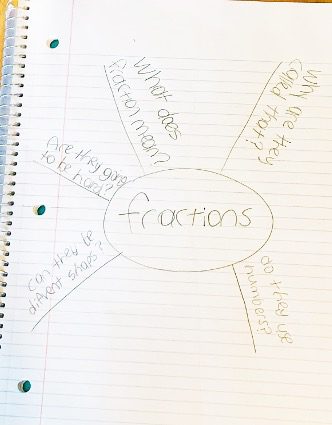 What does
fractoin mean?
why are they
called that?
Are they going
to be hard?
fractions
can they be
difrent shaps?
do they use
numbers?